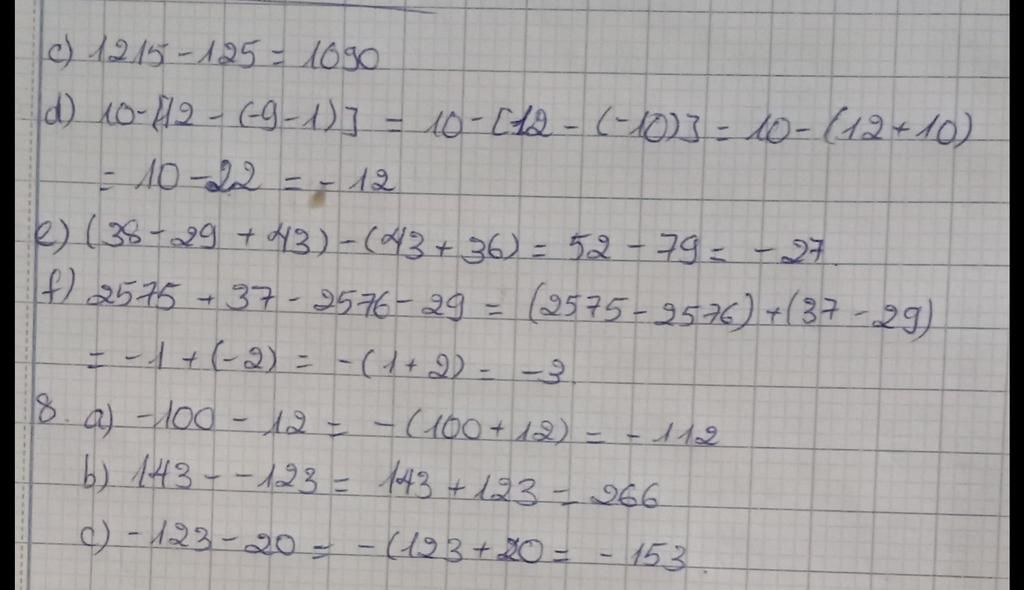 c) 1215 - 125 = 1090
d) 10 - [12 - (-9 - 1)] = 10 - [12 - (-10)] = 10 - (12 + 10)
= 10 - 22 = - 12
e) (38 - 29 + 43) - (43 + 36) = 52 - 79 = - 27
f) 2575 + 37 - 2576 - 29 = (2575 - 2576) + (37 - 29)
= -1 + (-2) = -(1 + 2) = -3
8. a) -100 - 12 = -(100 + 12) = - 112
b) 143 - -123 = 143 + 123 = 266
c) -123 - 20 = -(123 + 20 = - 153.